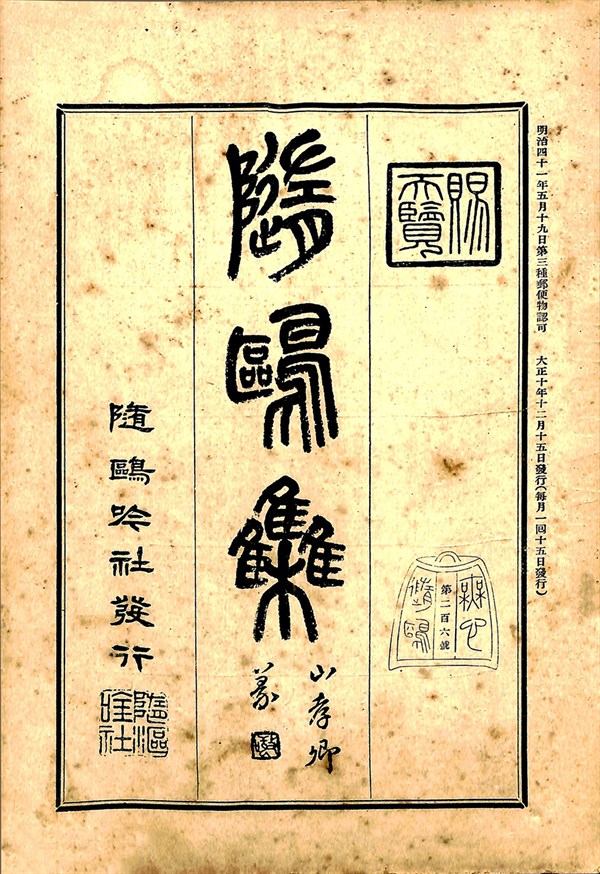 明治四十一年五月十九日第三種郵便物認可 大正十年十二月十五日發行(每月一回十五日發行)
賜
天覽
無心
第二百六號
隨鷗
隨鷗集
山孝卿
篆
隨鷗吟社發行